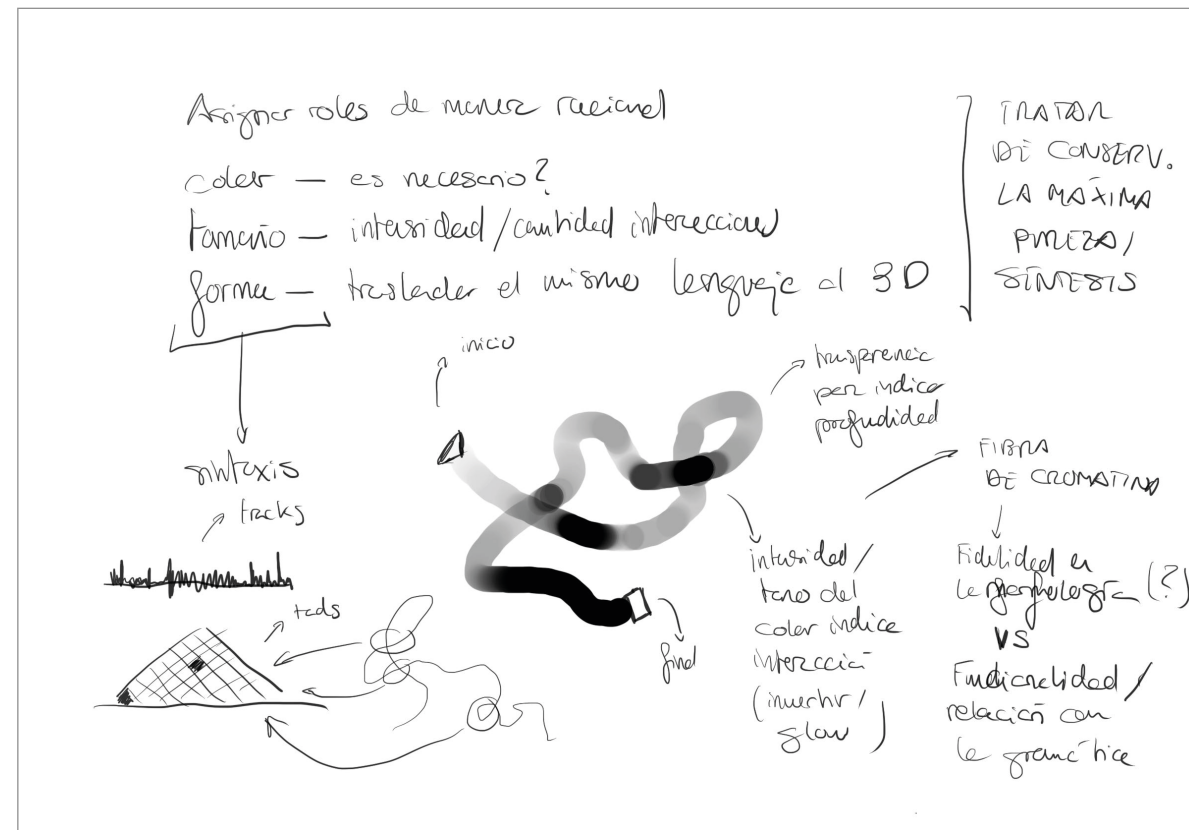 Asignar roles de manera racional
color — es necesario?
tamaño — intensidad/cantidad interaccion
forma — trasladar el mismo lenguaje al 3D
TRATAR
DE CONSERV.
LA MÁXIMA
PUREZA/
SÍNTESIS
inicio
trasparencia
para indicar
profundidad
sintaxis
tracks
tads
final
intensidad/
tono del
color indica
interacción
(invertir/
glow)
FIBRA
DE CROMATINA
Fidelidad en
la morfología (?)
VS
Funcionalidad/
relación con
la gramática